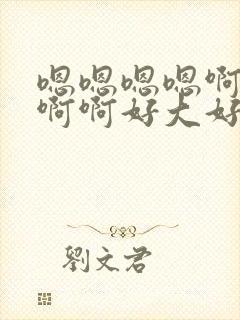 嗯嗯嗯嗯啊
啊啊好大好
劉文君